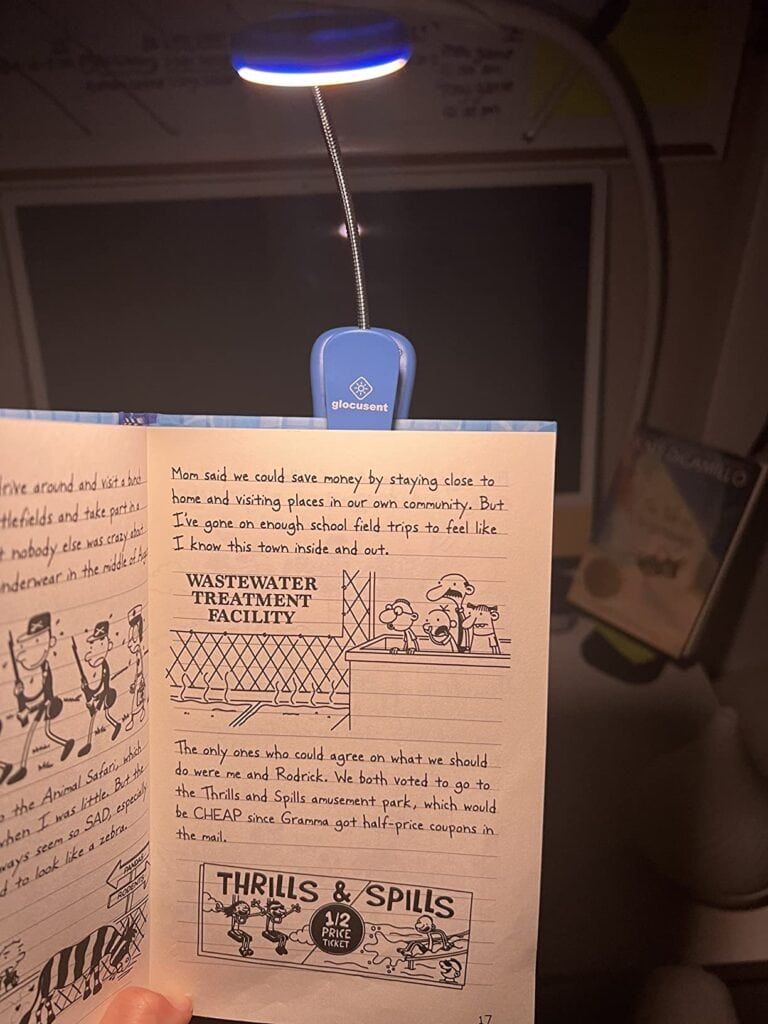 glocusent
drive around and visit a bunch
tlefields and take part in a
nobody else was crazy about
nderwear in the middle of
the Animal Safari, which
when I was little. But the
ways seem so SAD, especially
to look like a zebra.
PANDAS
RODENTS
Mom said we could save money by staying close to
home and visiting places in our own community. But
I've gone on enough school field trips to feel like
I know this town inside and out.
WASTEWATER
TREATMENT
FACILITY
The only ones who could agree on what we should
do were me and Rodrick. We both voted to go to
the Thrills and Spills amusement park, which would
be CHEAP since Gramma got half-price coupons in
the mail.
THRILLS & SPILLS
1/2
PRICE
TICKET
17
DICAMILLO